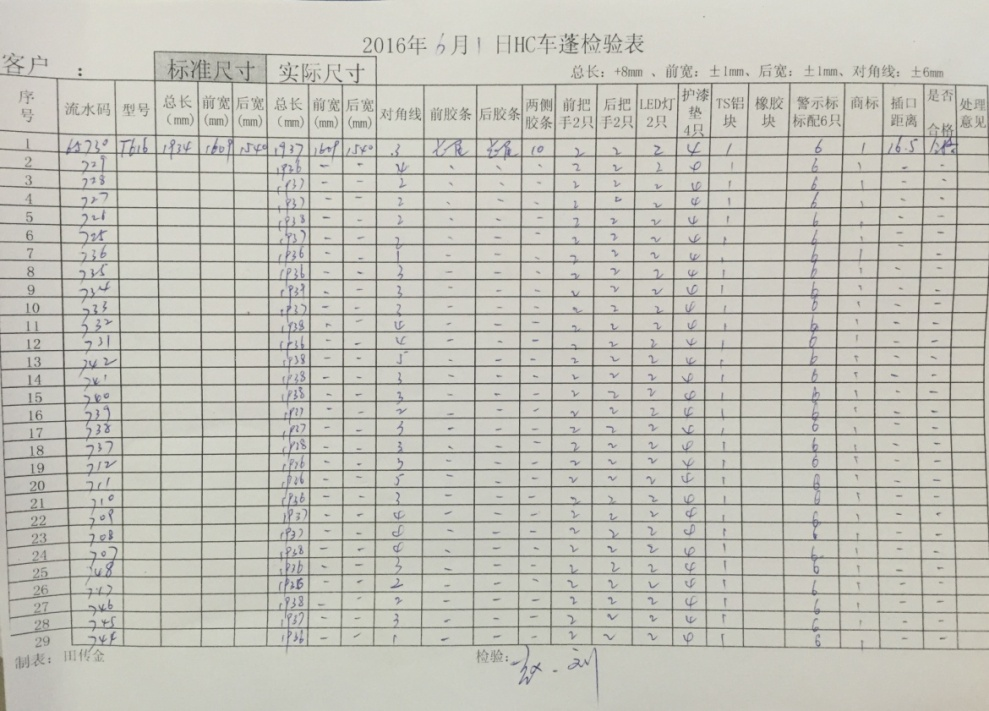 2016年6月1日HC车蓬检验表
客户：
标准尺寸 实际尺寸 总长：+8mm 、前宽：±1mm、后宽：±1mm、对角线：±6mm
序号 流水码 型号 总长(mm) 前宽(mm) 后宽(mm) 总长(mm) 前宽(mm) 后宽(mm) 对角线 前胶条 后胶条 两侧胶条 前把手2只 后把手2只 LED灯2只 护漆垫4只 TS铝块 橡胶块 警示标标配6只 商标 插口距离 是否合格 处理意见
1 65730 T616 1934 1609 1540 1937 1609 1540 3 10 2 2 2 4 1 6 1 16.5
2 729 1936 - - 4 2 2 2 4 1 6 1 - -
3 728 1937 - - 2 2 2 2 4 1 6 1 - -
4 727 1937 - - 2 2 2 2 4 1 6 1 - -
5 726 1938 - - 2 2 2 2 4 1 6 1 - -
6 725 1937 - - 2 2 2 2 4 1 6 1 - -
7 736 1936 - - 1 - - - 2 2 2 4 1 6 1 -
8 735 1936 - - 3 - - - 2 2 2 4 1 6 1 - -
9 734 1939 - - 3 - - - 2 2 2 4 1 6 1 - -
10 733 1937 - - 3 - - - 2 2 2 4 1 6 1 - -
11 732 1938 - - 4 - - - 2 2 2 4 1 6 1 - -
12 731 1936 - - 4 - - - 2 2 2 4 1 6 1 - -
13 742 1938 - - 5 - - - 2 2 2 4 1 6 1 - -
14 741 1938 - - 3 - - - 2 2 2 4 1 6 1 - -
15 740 1938 - - 3 - - - 2 2 2 4 1 6 1 - -
16 739 1937 - - 2 - - - 2 2 2 4 1 6 1 - -
17 738 1937 - - 3 - - - 2 2 2 4 1 6 1 - -
18 737 1938 - - 3 - - - 2 2 2 4 1 6 1 - -
19 712 1936 - - 3 - - - 2 2 2 4 1 6 1 - -
20 711 1936 - - 5 - - - 2 2 2 4 1 6 1 - -
21 710 1936 - - 3 - - - 2 2 2 4 1 6 1 - -
22 709 1937 - - 4 - - - 2 2 2 4 1 6 1 - -
23 708 1937 - - 4 - - - 2 2 2 4 1 6 1 - -
24 707 1938 - - 4 - - - 2 2 2 4 1 6 1 - -
25 748 1936 - - 3 - - - 2 2 2 4 1 6 1 - -
26 747 - - 2 - - - 2 2 2 4 1 6 1 - -
27 746 1938 - - 2 - - - 2 2 2 4 1 6 1 - -
28 745 1937 - - 3 - - - 2 2 2 4 1 6 1 - -
29 744 1936 - - 1 - - - 2 2 2 4 1 6 1 - -
制表：田传金 检验：